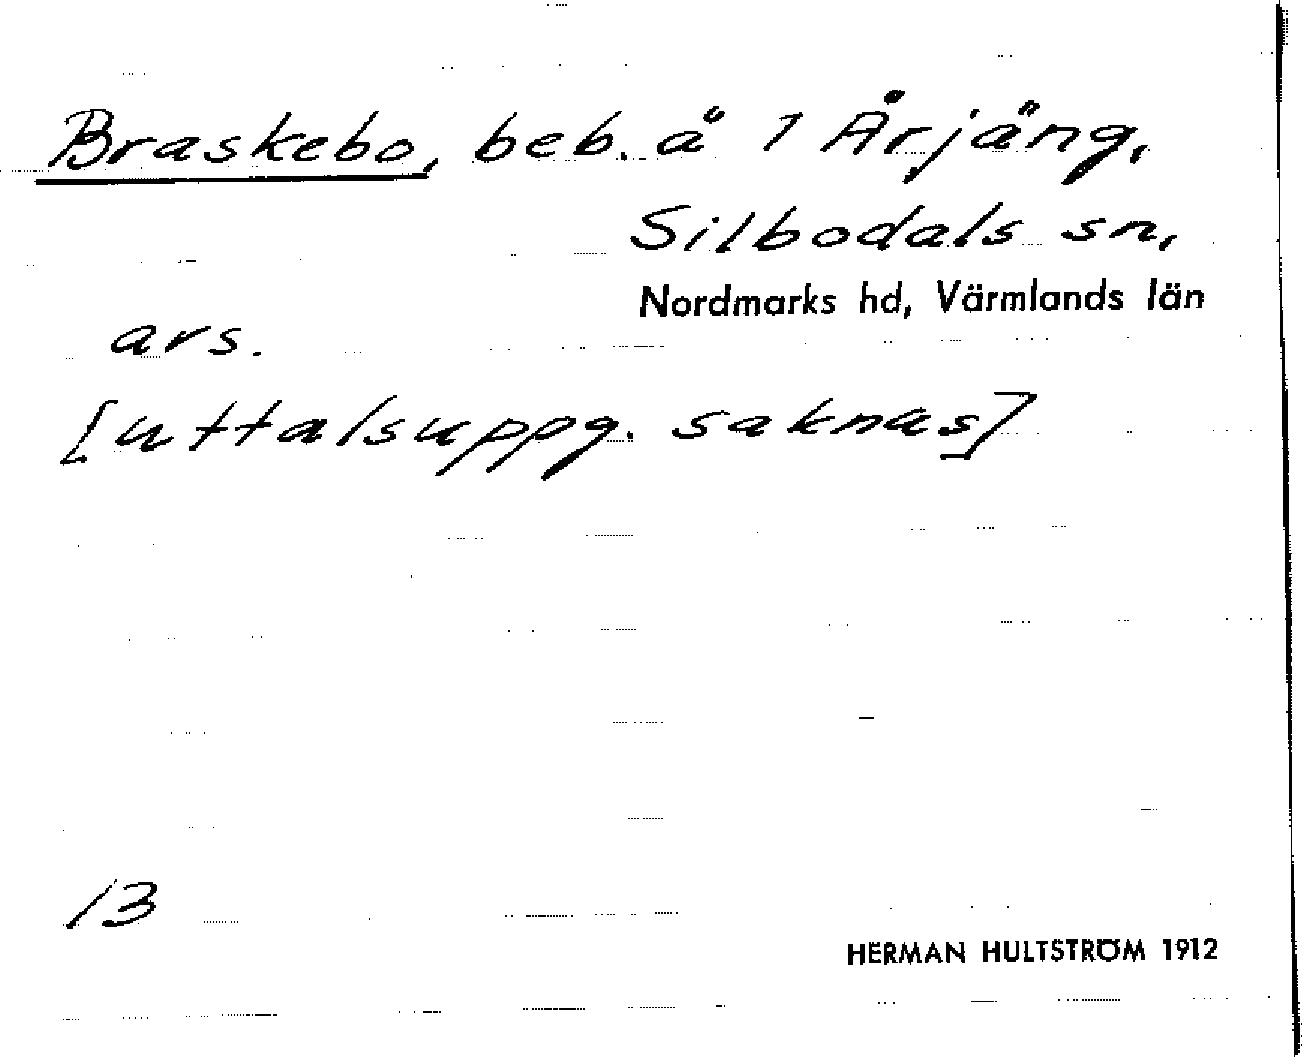 Braskebo, beb. å 1 Årjäng,
Silbodals sn,
Nordmarks hd, Värmlands län
avs.
[uttalsuppg. saknas]
13
HERMAN HULTSTRÖM 1912